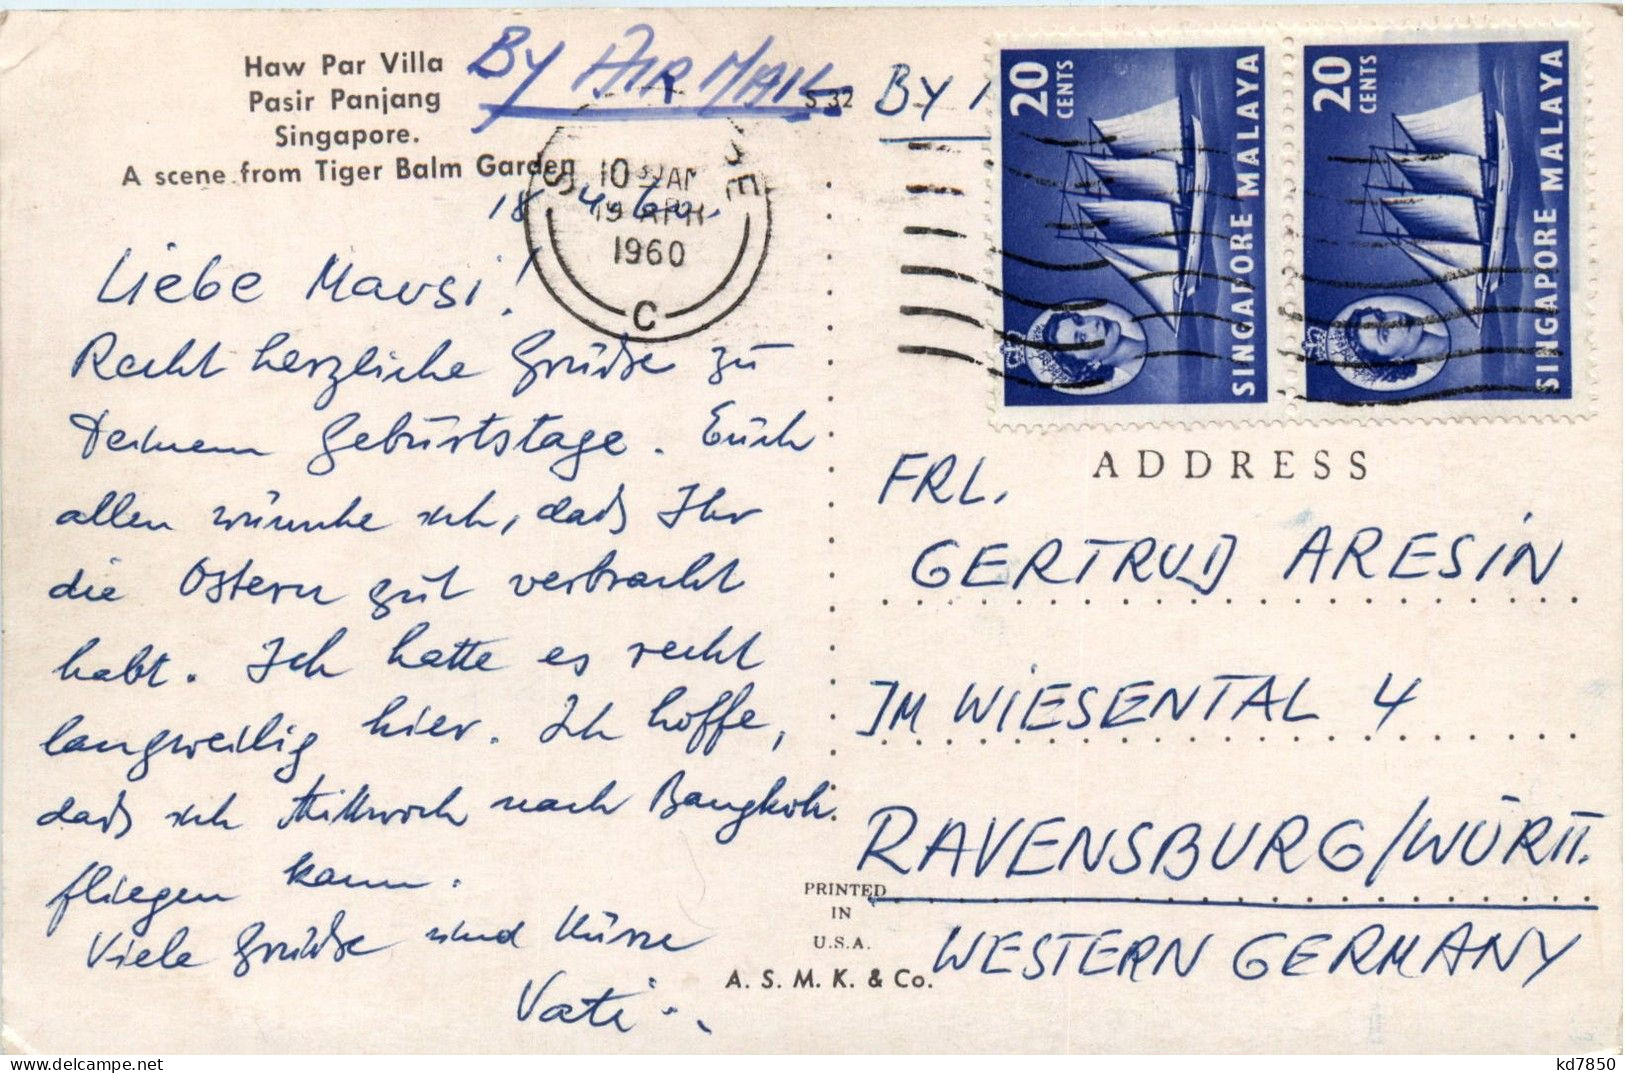 Haw Par Villa
Pasir Panjang
Singapore.
A scene from Tiger Balm Garden
BY AIR MAIL
S 32
BY
18.4.60.
10 JAN
19 APR
1960
C
20 CENTS
SINGAPORE MALAYA
20 CENTS
SINGAPORE MALAYA
Liebe Mausi!
Recht herzliche Grüße zu
Deinem Geburtstage. Euch
allen wünsche ich, daß Ihr
die Ostern gut verbracht
habt. Ich hatte es recht
langweilig hier. Ich hoffe,
daß ich Mittwoch nach Bangkok
fliegen kann.
Viele Grüße und Küsse
Vati
ADDRESS
FRL.
GERTRUD ARESIN
IM WIESENTAL 4
RAVENSBURG/WÜRTT.
WESTERN GERMANY
PRINTED
IN
U.S.A.
A. S. M. K. & Co.
kd7850